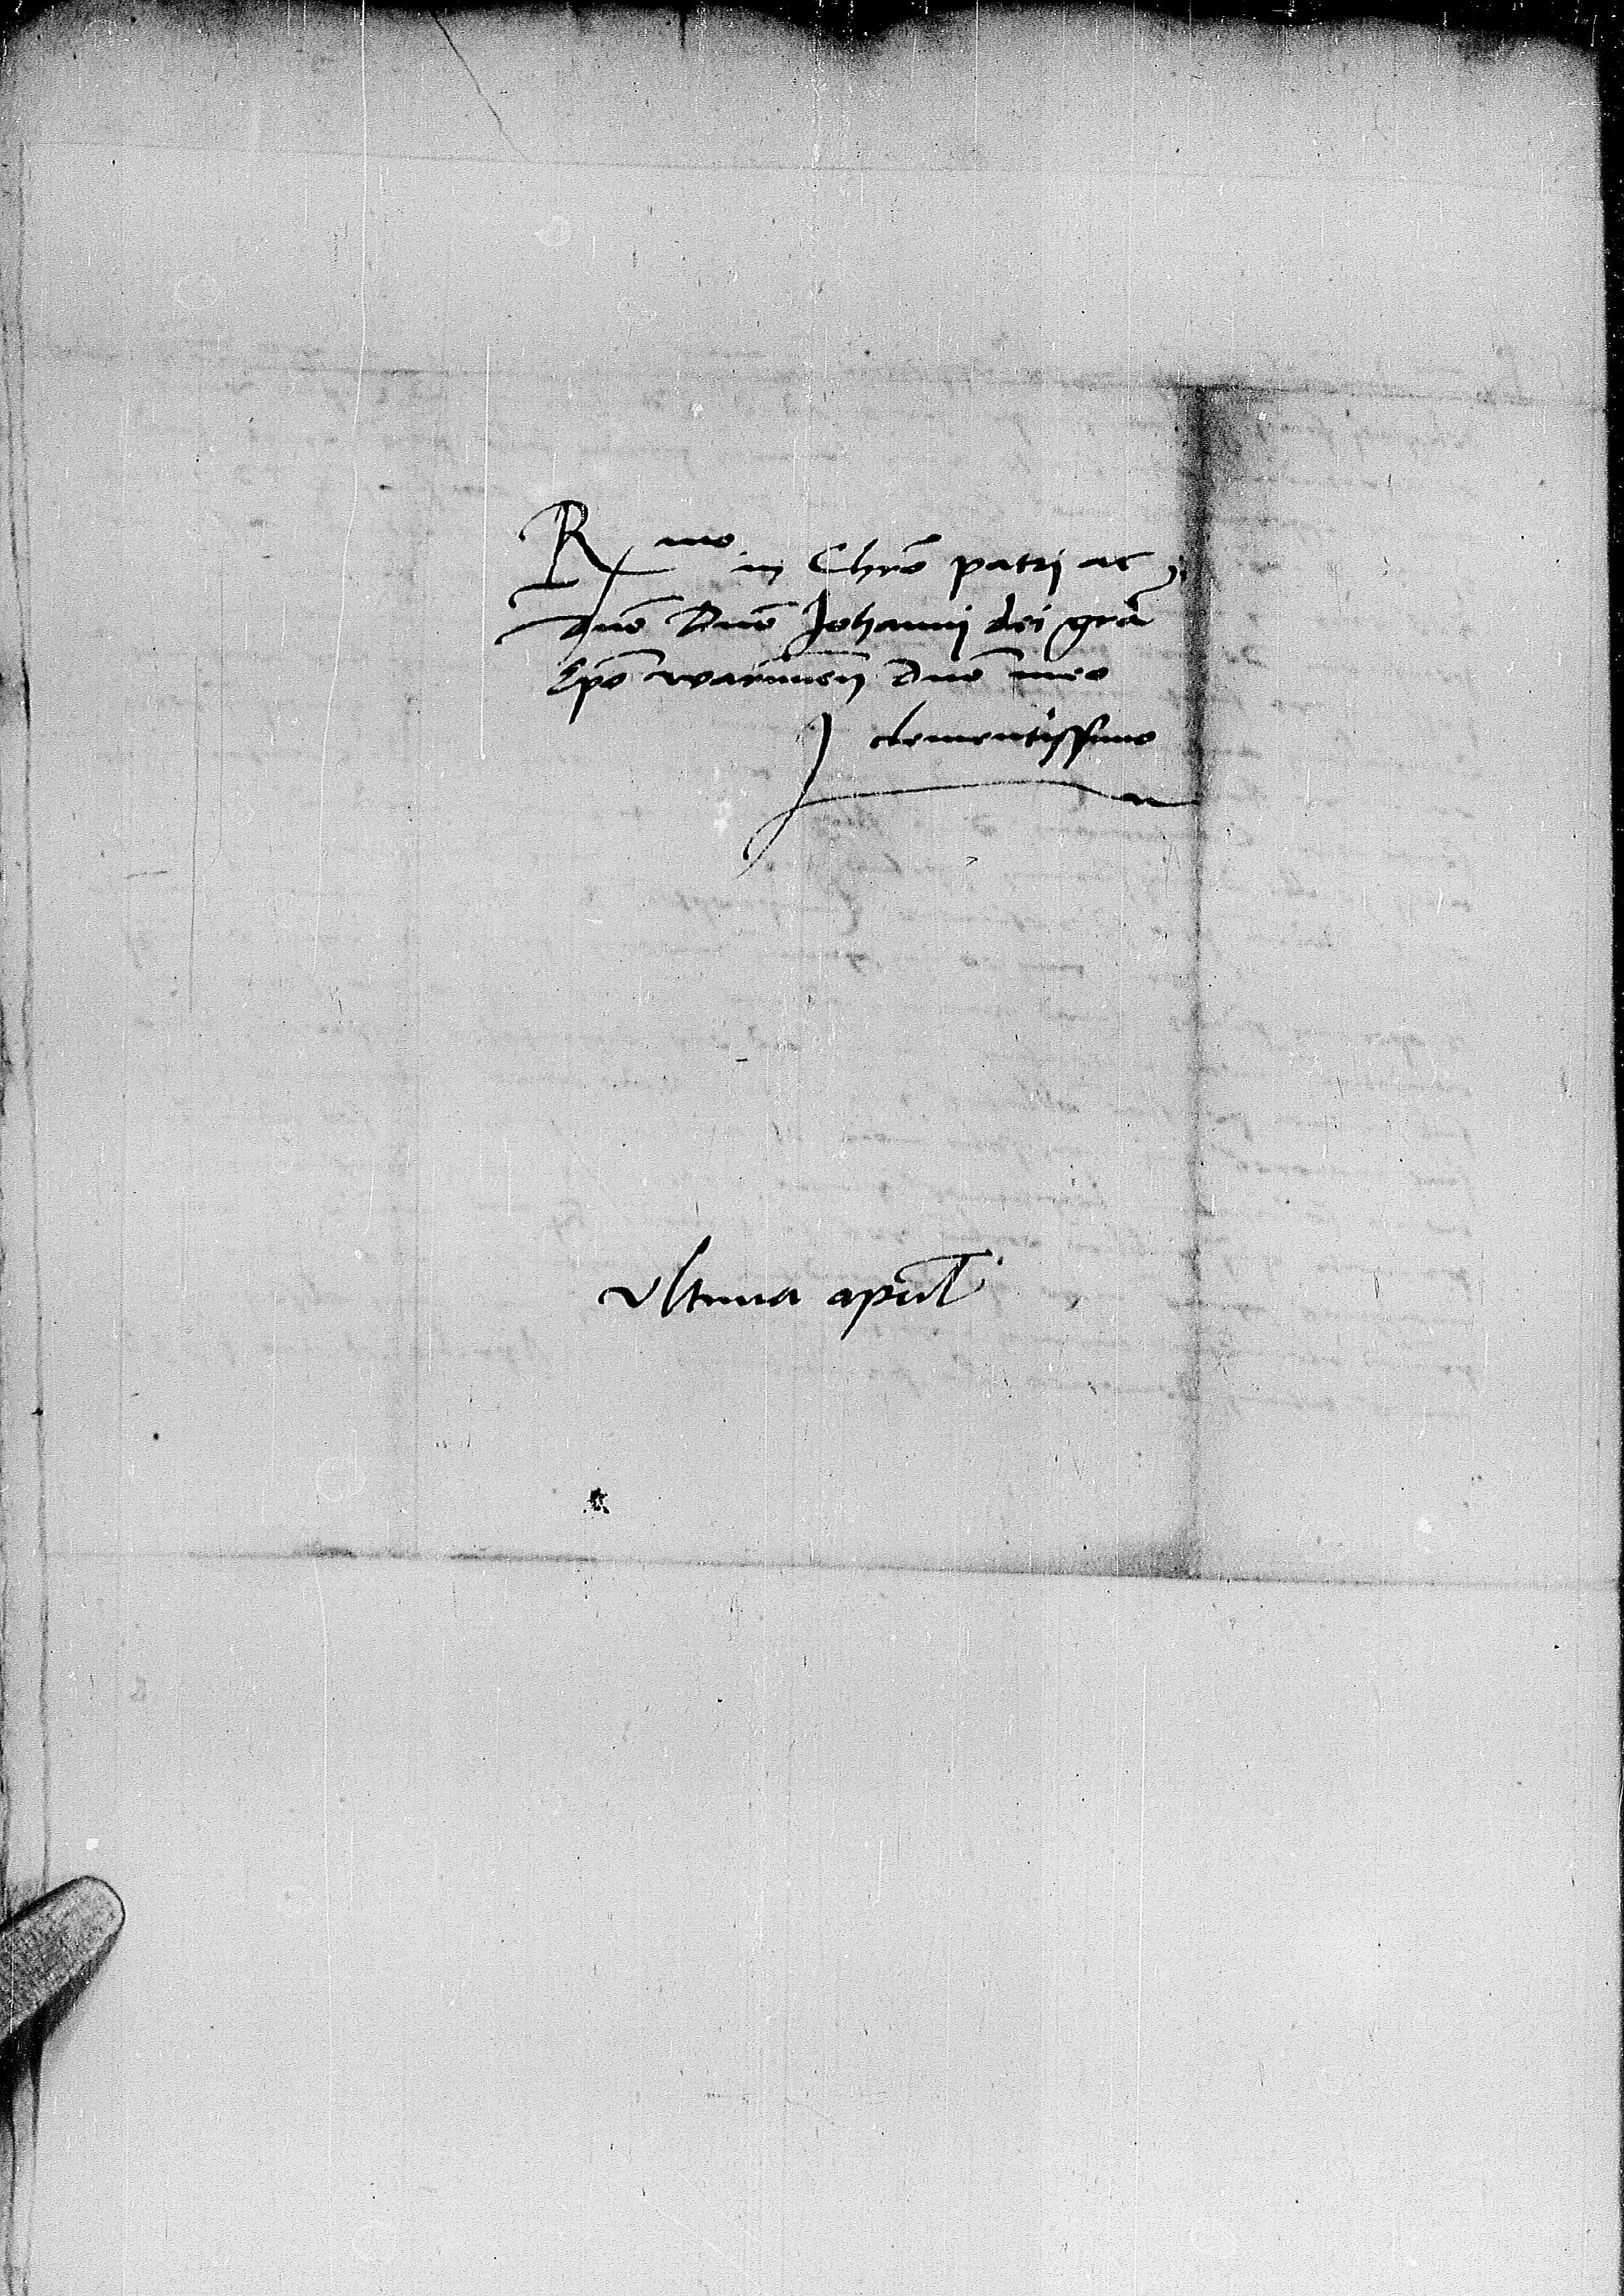 R mo in Chrō patri ac
dnō Dnō Johanni dei grā
Epō warmien̄ Dnō meo
clementissimo
vltima apīl